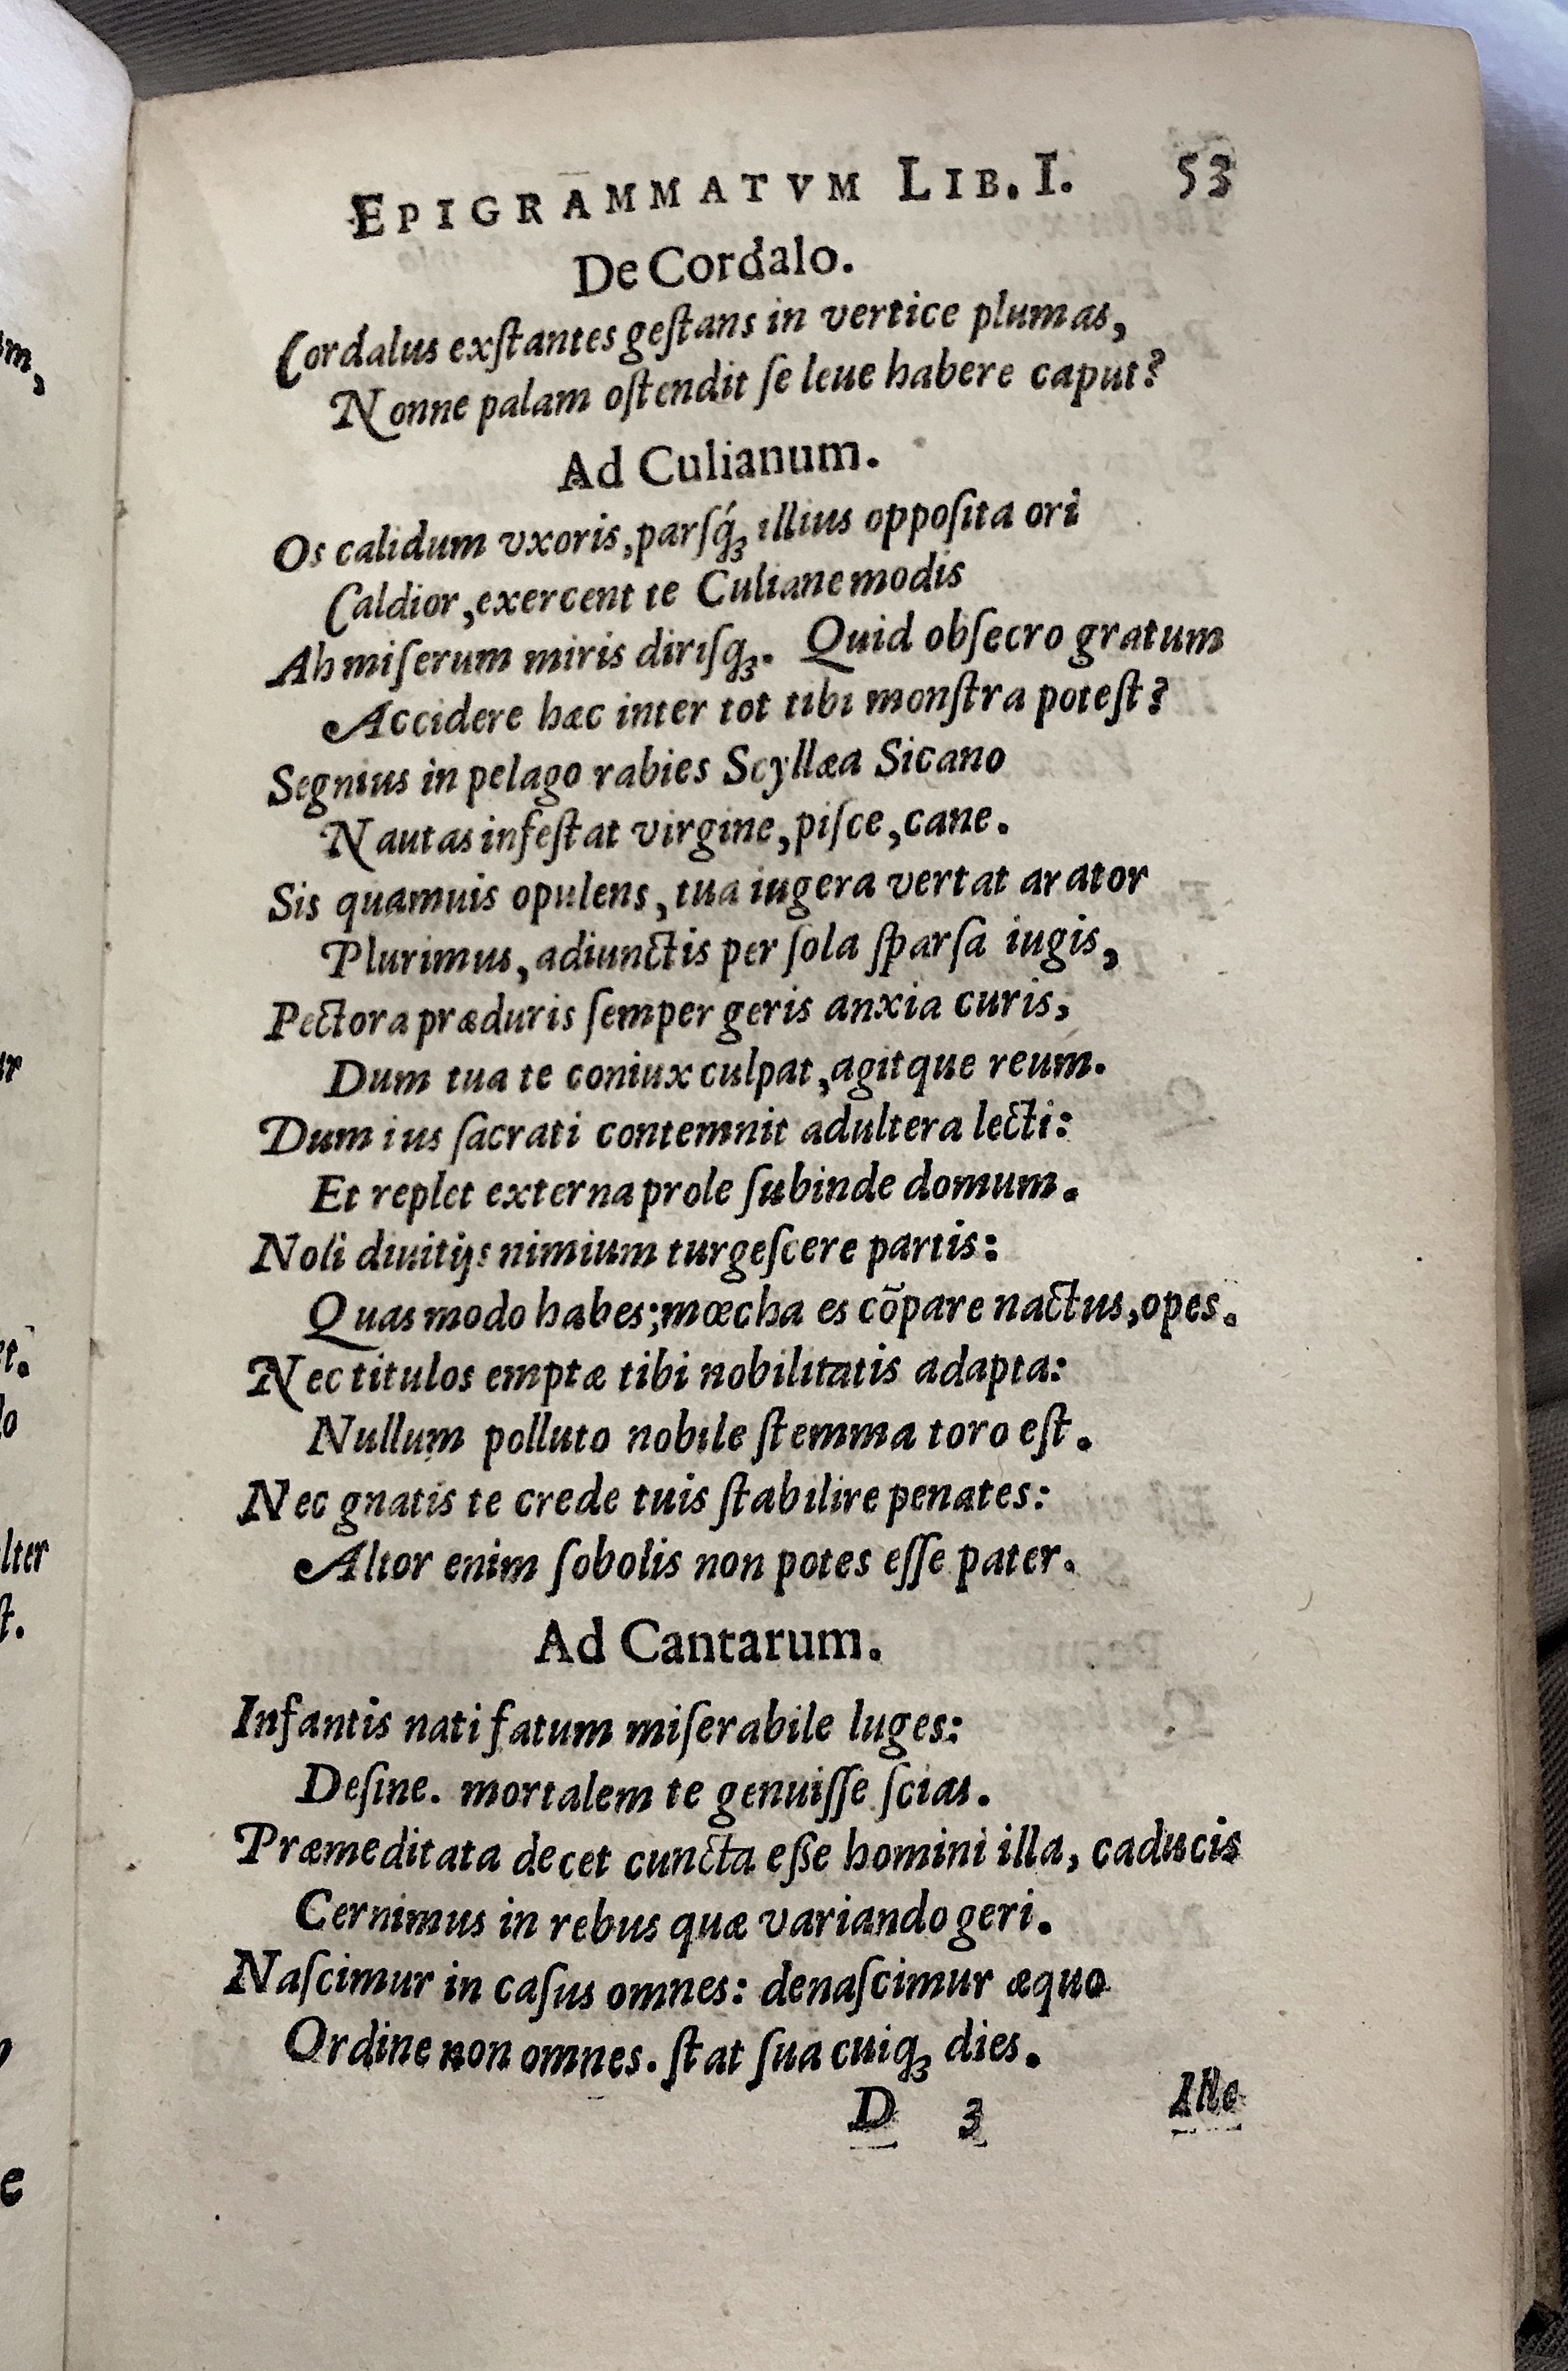 EPIGRAMMATVM LIB. I. 53
De Cordalo.
Cordalus exſtantes geſtans in vertice plumas,
Nonne palam oſtendit ſe leue habere caput?
Ad Culianum.
Os calidum vxoris, parſq́ꝫ illius oppoſita ori
Caldior, exercent te Culiane modis
Ah miſerum miris diriſqꝫ. Quid obſecro gratum
Accidere hæc inter tot tibi monſtra poteſt?
Segnius in pelago rabies Scyllæa Sicano
Nautas infeſtat virgine, piſce, cane.
Sis quamuis opulens, tua iugera vertat arator
Plurimus, adiunctis per ſola ſparſa iugis,
Pectora præduris ſemper geris anxia curis,
Dum tua te coniux culpat, agitque reum.
Dum ius ſacrati contemnit adultera lecti:
Et replet externa prole ſubinde domum.
Noli diuitijs nimium turgeſcere partis:
Quas modo habes; mœcha es cõpare nactus, opes.
Nec titulos emptæ tibi nobilitatis adapta:
Nullum polluto nobile ſtemma toro eſt.
Nec gnatis te crede tuis ſtabilire penates:
Altor enim ſobolis non potes eſſe pater.
Ad Cantarum.
Infantis nati fatum miſerabile luges:
Deſine. mortalem te genuiſſe ſcias.
Præmeditata decet cuncta eſſe homini illa, caducis
Cernimus in rebus quæ variando geri.
Naſcimur in caſus omnes: denaſcimur æquo
Ordine non omnes. ſtat ſua cuiqꝫ dies.
D 3 Ille